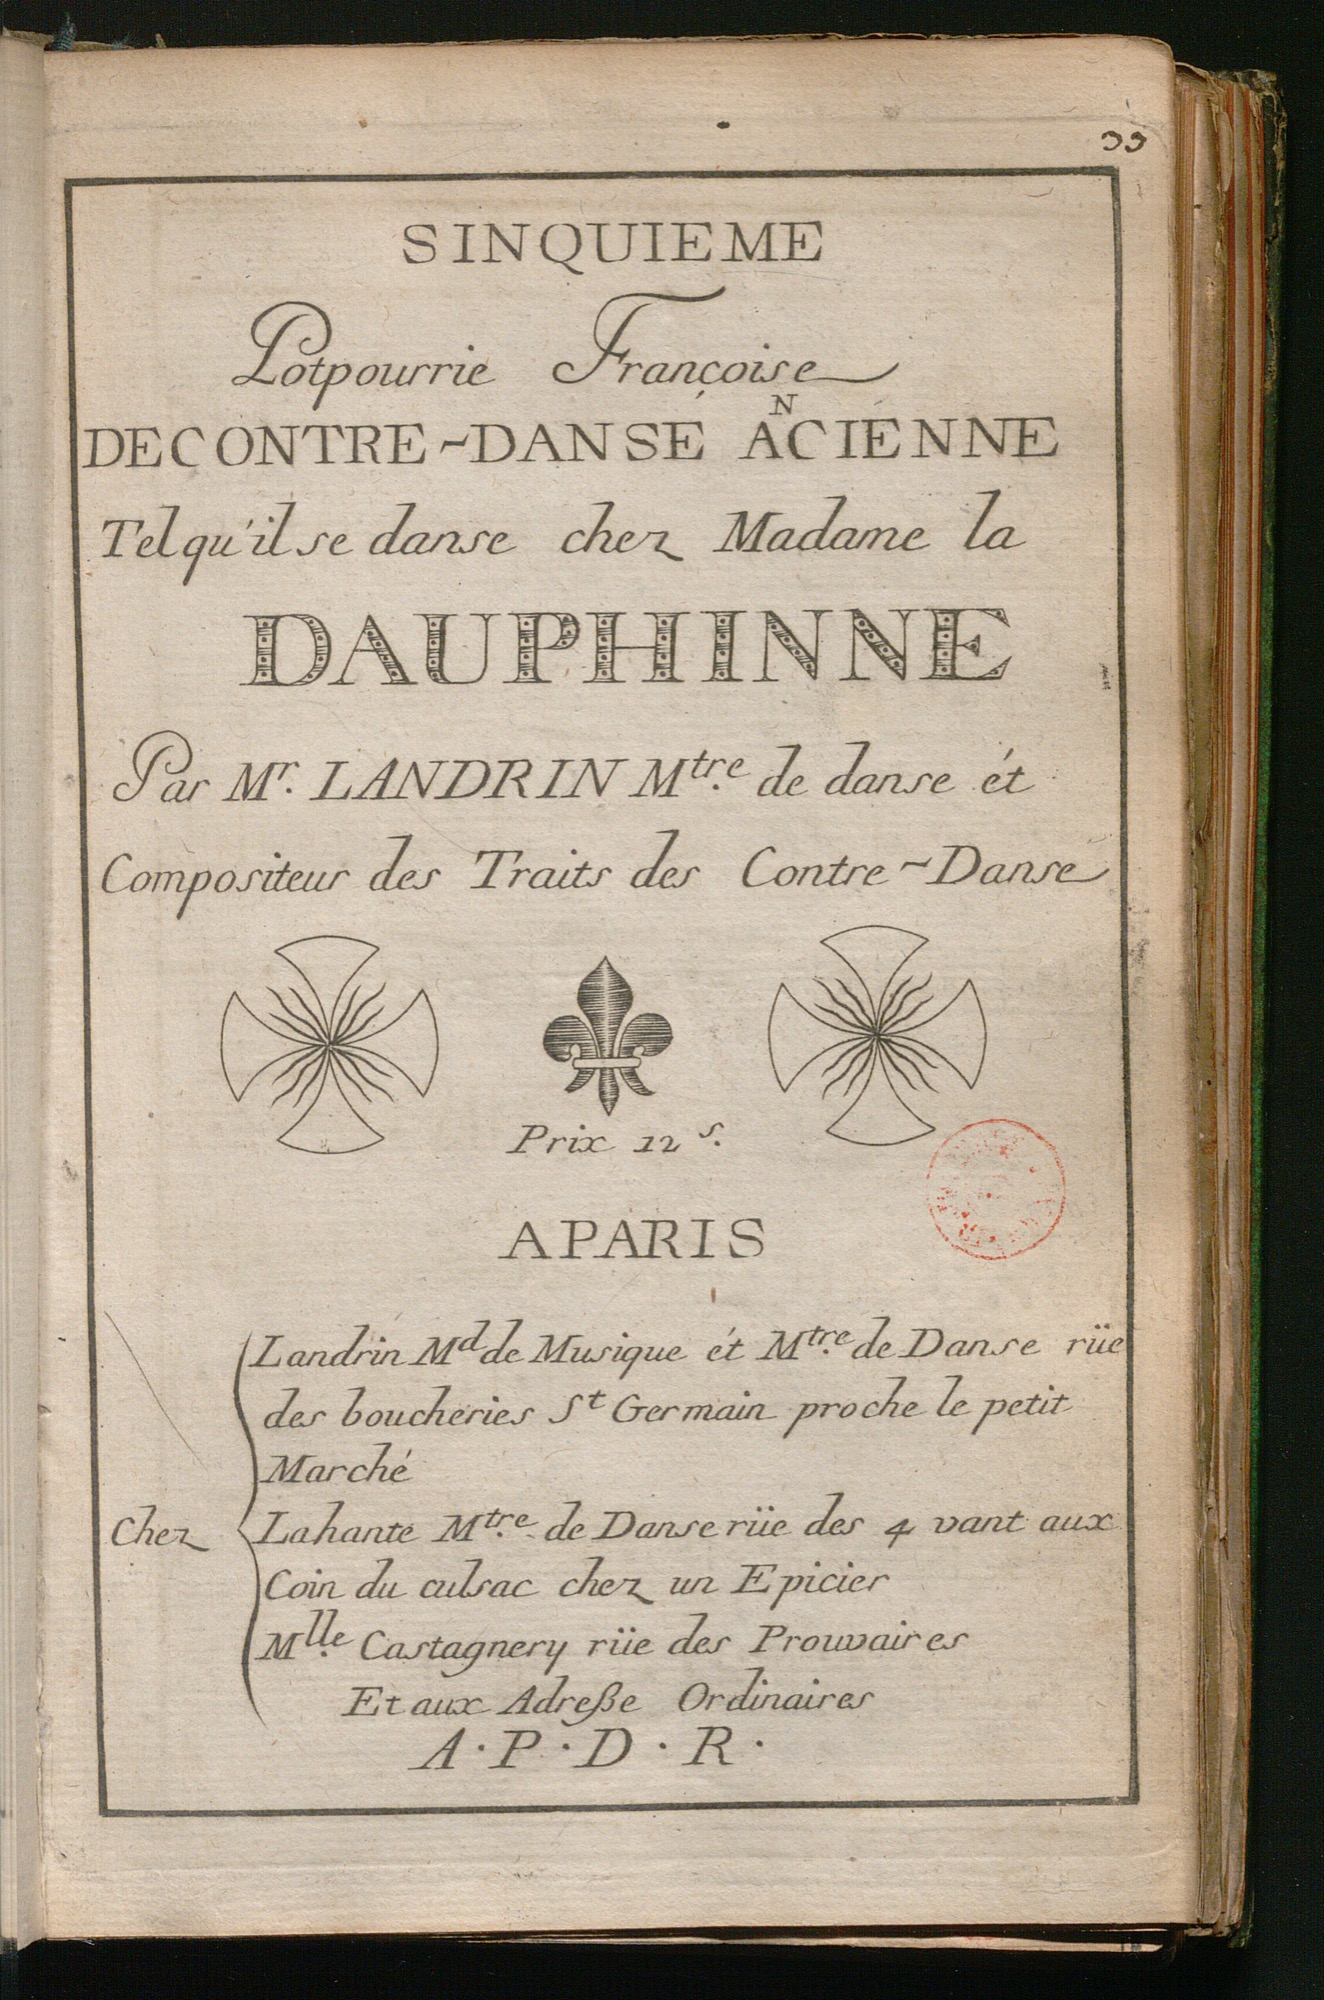 33
SINQUIEME
Potpourrie Françoise
DECONTRE-DANSÉ ANCIÉNNE
Telqu'il se danse chez Madame la
DAUPHINNE
Par Mr. LANDRIN Mtre. de danse ét
Compositeur des Traits des Contre-Danse
Prix 12 s.
APARIS
Chez
Landrin Md de Musique ét Mtre. de Danse rüe
des boucheries St Germain proche le petit
Marché
Lahante Mtre. de Danse rüe des 4 vant aux
Coin du culsac chez un Epicier
Mlle. Castagnery rüe des Prouvaires
Et aux Adreße Ordinaires
A. P. D. R.